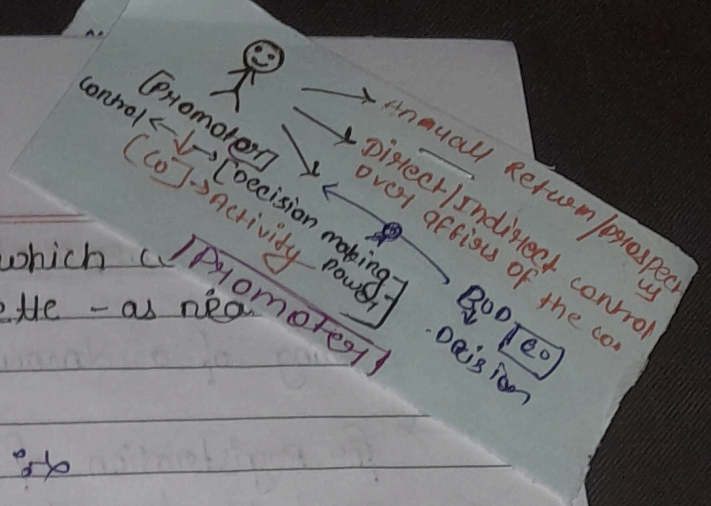 Annuall Return/prospect
us
Direct/Indirect control
over affiers of the co.
[Promoter]
control ← ↓ → [Decision making
power]
[co] → Activity
Promoter
BOD [co]
Dcision
which
ette - as nea